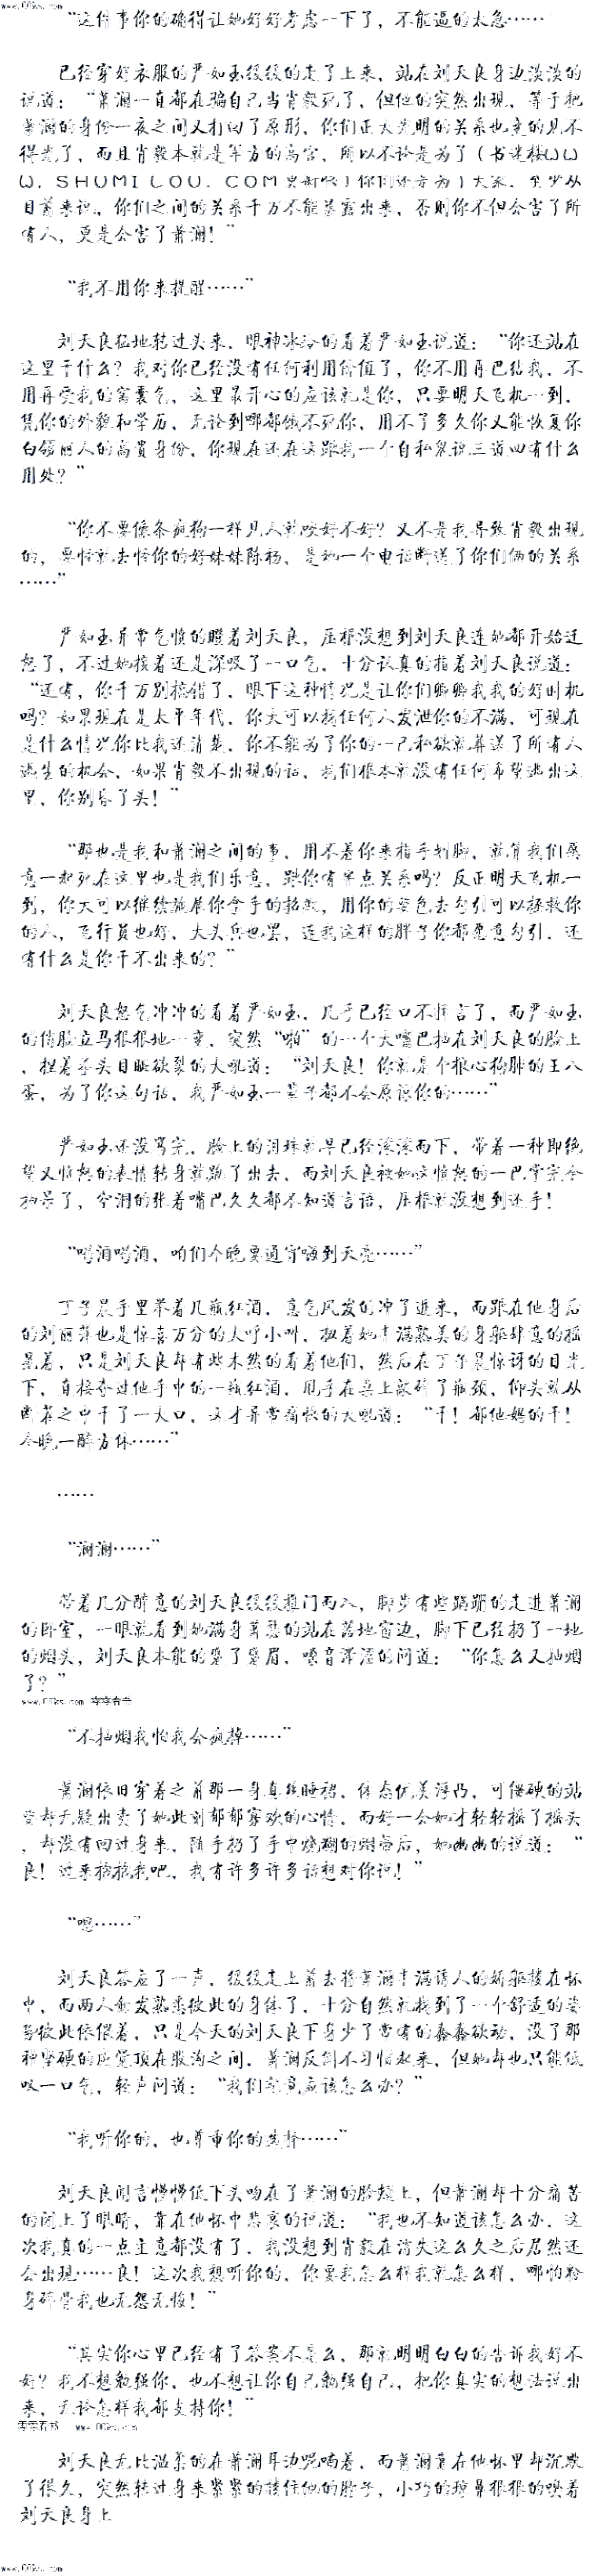 www.00ks.com
“这件事你的确得让她好好考虑一下了，不能逼的太急……
已经穿好衣服的严如玉缓缓的走了上来，站在刘天良身边淡淡的
说道：“萧澜一直都在骗自己当肖毅死了，但他的突然出现，等于把
萧澜的身份一夜之间又打回了原形，你们正大光明的关系也变的见不
得光了，而且肖毅本就是军方的高官，所以不论是为了（书迷楼ＷＷ
Ｗ．ＳＨＵＭＩＬＯＵ．ＣＯＭ更新快）你们还是为）大家．至少从
目前来说，你们之间的关系千万不能暴露出来，否则你不但会害了所
有人，更是会害了萧澜！”
“我不用你来提醒……”
刘天良猛地转过头来，眼神冰冷的看着严如玉说道：“你还站在
这里干什么？我对你已经没有任何利用价值了，你不用再巴结我，不
用再受我的窝囊气，这里最开心的应该就是你，只要明天飞机一到，
凭你的外貌和学历，无论到哪都饿不死你，用不了多久你又能恢复你
白领丽人的高贵身份，你现在还在这跟我一个自私鬼说三道四有什么
用处？”
“你不要像条疯狗一样见人就咬好不好？又不是我导致肖毅出现
的，要怪就去怪你的好妹妹陈杨，是她一个电话断送了你们俩的关系
……”
严如玉异常气愤的瞪着刘天良，压根没想到刘天良连她都开始迁
怒了，不过她接着还是深吸了一口气，十分认真的指着刘天良说道：
“还有，你千万别搞错了，眼下这种情况是让你们卿卿我我的好时机
吗？如果现在是太平年代，你大可以找任何人发泄你的不满，可现在
是什么情况你比我还清楚，你不能为了你的一己私欲就葬送了所有人
逃生的机会，如果肖毅不出现的话，我们根本就没有任何希望逃出这
里，你别昏了头！”
“那也是我和萧澜之间的事，用不着你来指手划脚，就算我们愿
意一起死在这里也是我们乐意，跟你有半点关系吗？反正明天飞机一
到，你大可以继续施展你拿手的招数，用你的姿色去勾引可以拯救你
的人，飞行员也好，大头兵也罢，连我这样的胖子你都愿意勾引，还
有什么是你干不出来的？”
刘天良怒气冲冲的看着严如玉，几乎已经口不择言了，而严如玉
的俏脸立马狠狠地一变，突然“啪”的一个大嘴巴抽在刘天良的脸上
，捏着拳头目眦欲裂的大吼道：“刘天良！你就是个狼心狗肺的王八
蛋，为了你这句话，我严如玉一辈子都不会原谅你的……”
严如玉还没骂完，脸上的泪珠就早已经滚滚而下，带着一种即绝
望又愤怒的表情转身就跑了出去，而刘天良被她这愤怒的一巴掌完全
抽呆了，空洞的张着嘴巴久久都不知道言语，压根就没想到还手！
“喝酒喝酒，咱们今晚要通宵嗨到天亮……”
丁子晨手里拿着几瓶红酒，意气风发的冲了进来，而跟在他身后
的刘丽萍也是惊喜万分的大呼小叫，扭着她丰满熟美的身躯肆意的摇
晃着，只是刘天良却有些木然的看着他们，然后在丁子晨惊讶的目光
下，直接夺过他手中的一瓶红酒，甩手在桌上敲碎了瓶颈，仰头就从
断茬之中干了一大口，这才异常痛快的大吼道：“干！都他妈的干！
今晚一醉方休……”
……
“澜澜……”
带着几分醉意的刘天良缓缓推门而入，脚步有些蹒跚的走进萧澜
的卧室，一眼就看到她满身萧瑟的站在落地窗边，脚下已经扔了一地
的烟头，刘天良本能的蹙了蹙眉，嗓音浑浊的问道：“你怎么又抽烟
了？”
www.00ks.com 零零看书
“不抽烟我怕我会疯掉……”
萧澜依旧穿着之前那一身真丝睡裙，体态优美浮凸，可僵硬的站
姿却无疑出卖了她此刻郁郁寡欢的心情，而好一会她才轻轻摇了摇头
，却没有回过身来，随手扔了手中烧糊的烟蒂后，她幽幽的说道：“
良！过来抱抱我吧，我有许多许多话想对你说！”
“嗯……”
刘天良答应了一声，缓缓走上前去将萧澜丰满诱人的娇躯搂在怀
中，而两人愈发熟悉彼此的身体了，十分自然就找到了一个舒适的姿
势彼此依偎着，只是今天的刘天良下身少了常有的蠢蠢欲动，没了那
种坚硬的感觉顶在股沟之间，萧澜反倒不习惯起来，但她却也只能低
叹一口气，轻声问道：“我们究竟应该怎么办？”
“我听你的，也尊重你的选择……”
刘天良闻言慢慢低下头吻在了萧澜的脸颊上，但萧澜却十分痛苦
的闭上了眼睛，靠在他怀中悲哀的说道：“我也不知道该怎么办，这
次我真的一点主意都没有了，我没想到肖毅在消失这么久之后居然还
会出现……良！这次我想听你的，你要我怎么样我就怎么样，哪怕粉
身碎骨我也无怨无悔！”
“其实你心里已经有了答案不是么，那就明明白白的告诉我好不
好？我不想勉强你，也不想让你自己勉强自己，把你真实的想法说出
来，无论怎样我都支持你！”
零零看书 www.00ks.com
刘天良无比温柔的在萧澜耳边呢喃着，而萧澜靠在他怀里却沉默
了很久，突然转过身来紧紧的搂住他的脖子，小巧的琼鼻狠狠的嗅着
刘天良身上
www.00ks.com